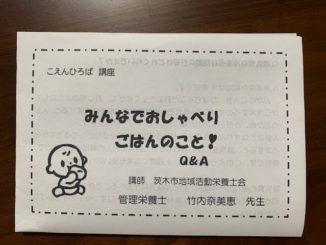 こえんひろば 講座
みんなでおしゃべり
ごはんのこと!
Q&A
講師 茨木市地域活動栄養士会
管理栄養士 竹内奈美恵 先生